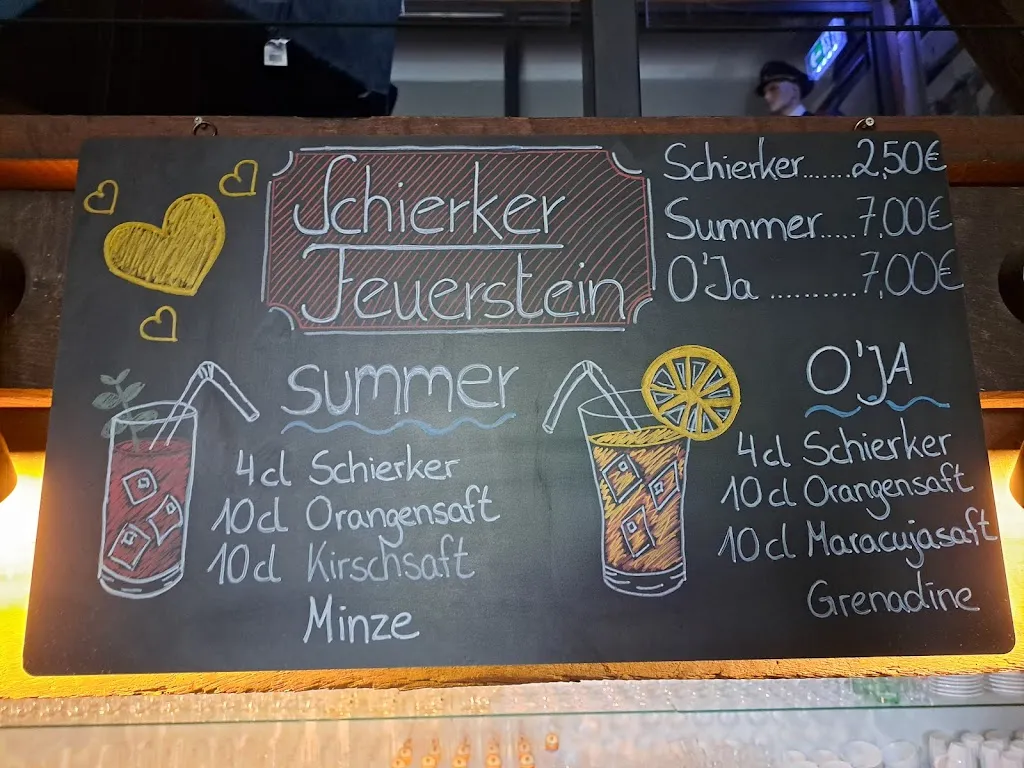 Schierker
Feuerstein
Schierker.......2,50€
Summer.....7,00€
O'Ja ..........7,00€
summer
4cl Schierker
10cl Orangensaft
10cl Kirschsaft
Minze
O'JA
4cl Schierker
10cl Orangensaft
10cl Maracujasaft
Grenadine